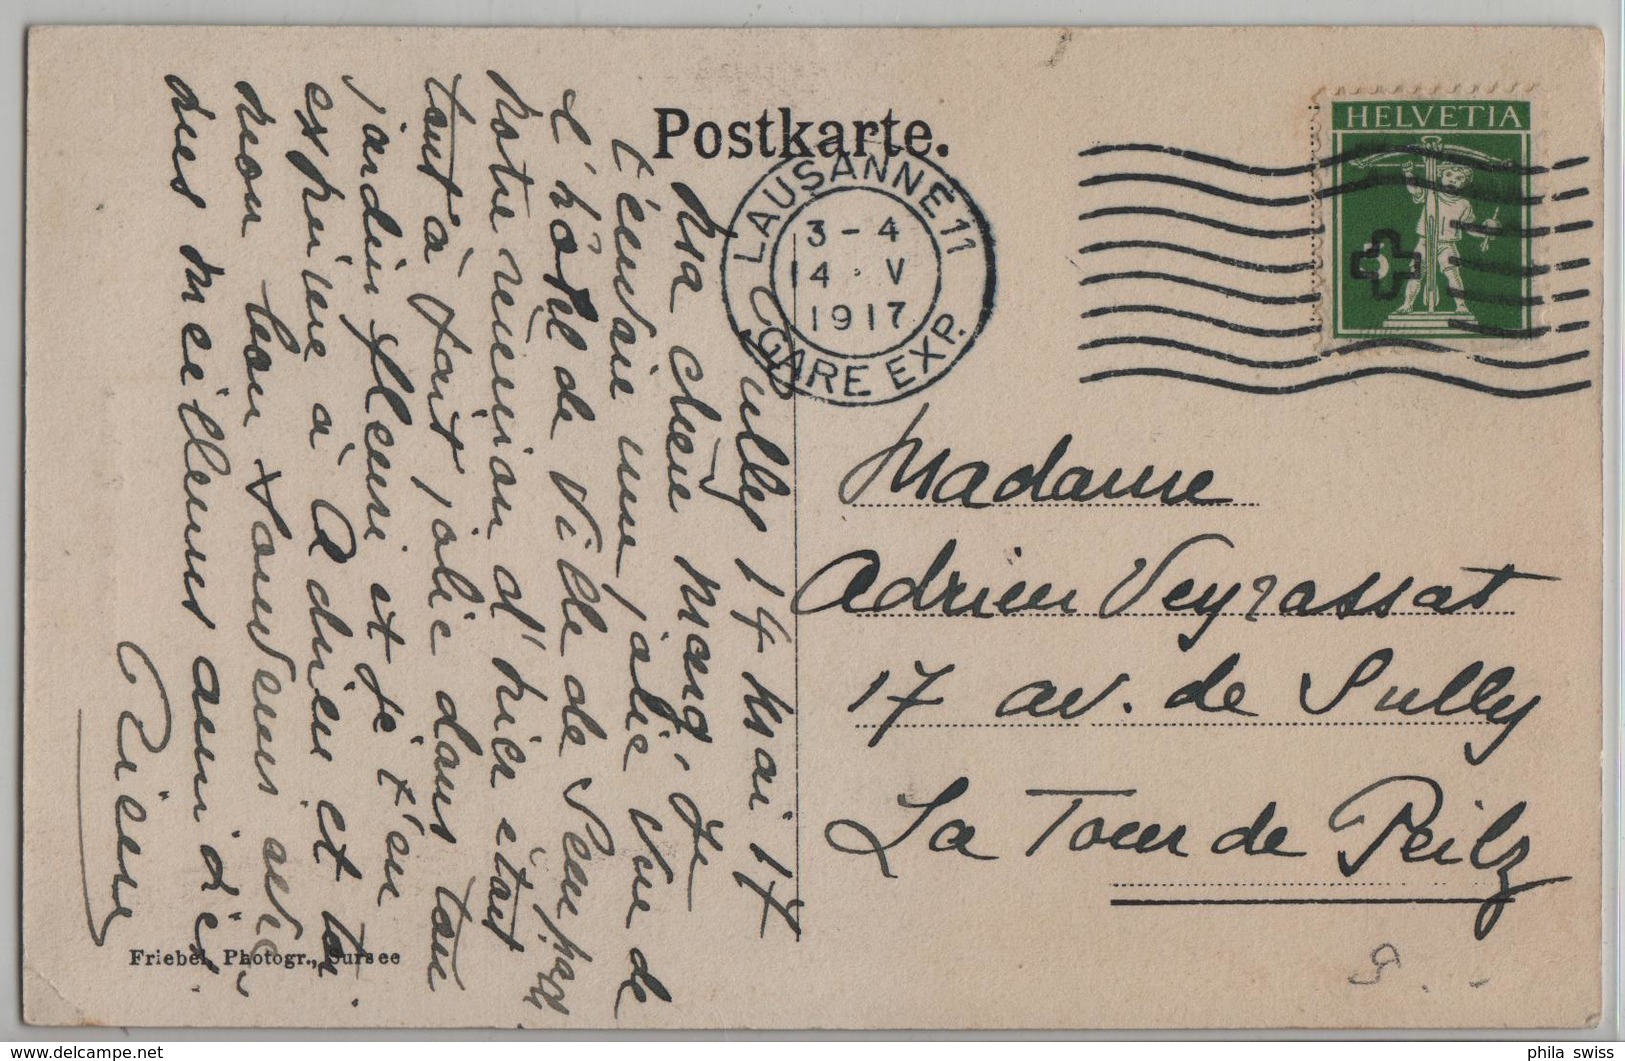 Postkarte.
HELVETIA
5
LAUSANNE 11
3-4
14 . V
1917
GARE EXP.
Pully 14 Mai 17
Ma chère Marg, je
t'envoie une jolie vue de
l'hôtel de Ville de Sempach
Notre réunion d'hier était
tout à fait jolie dans ton
jardin fleuri et je t'en
exprime à Adrien et toi
mon bon souvenir avec
mes meilleures amitiés
Madame
Adrien Veyrassat
17 av. de Sully
La Tour de Peilz
Friebel, Photogr., Sursee
phila swiss